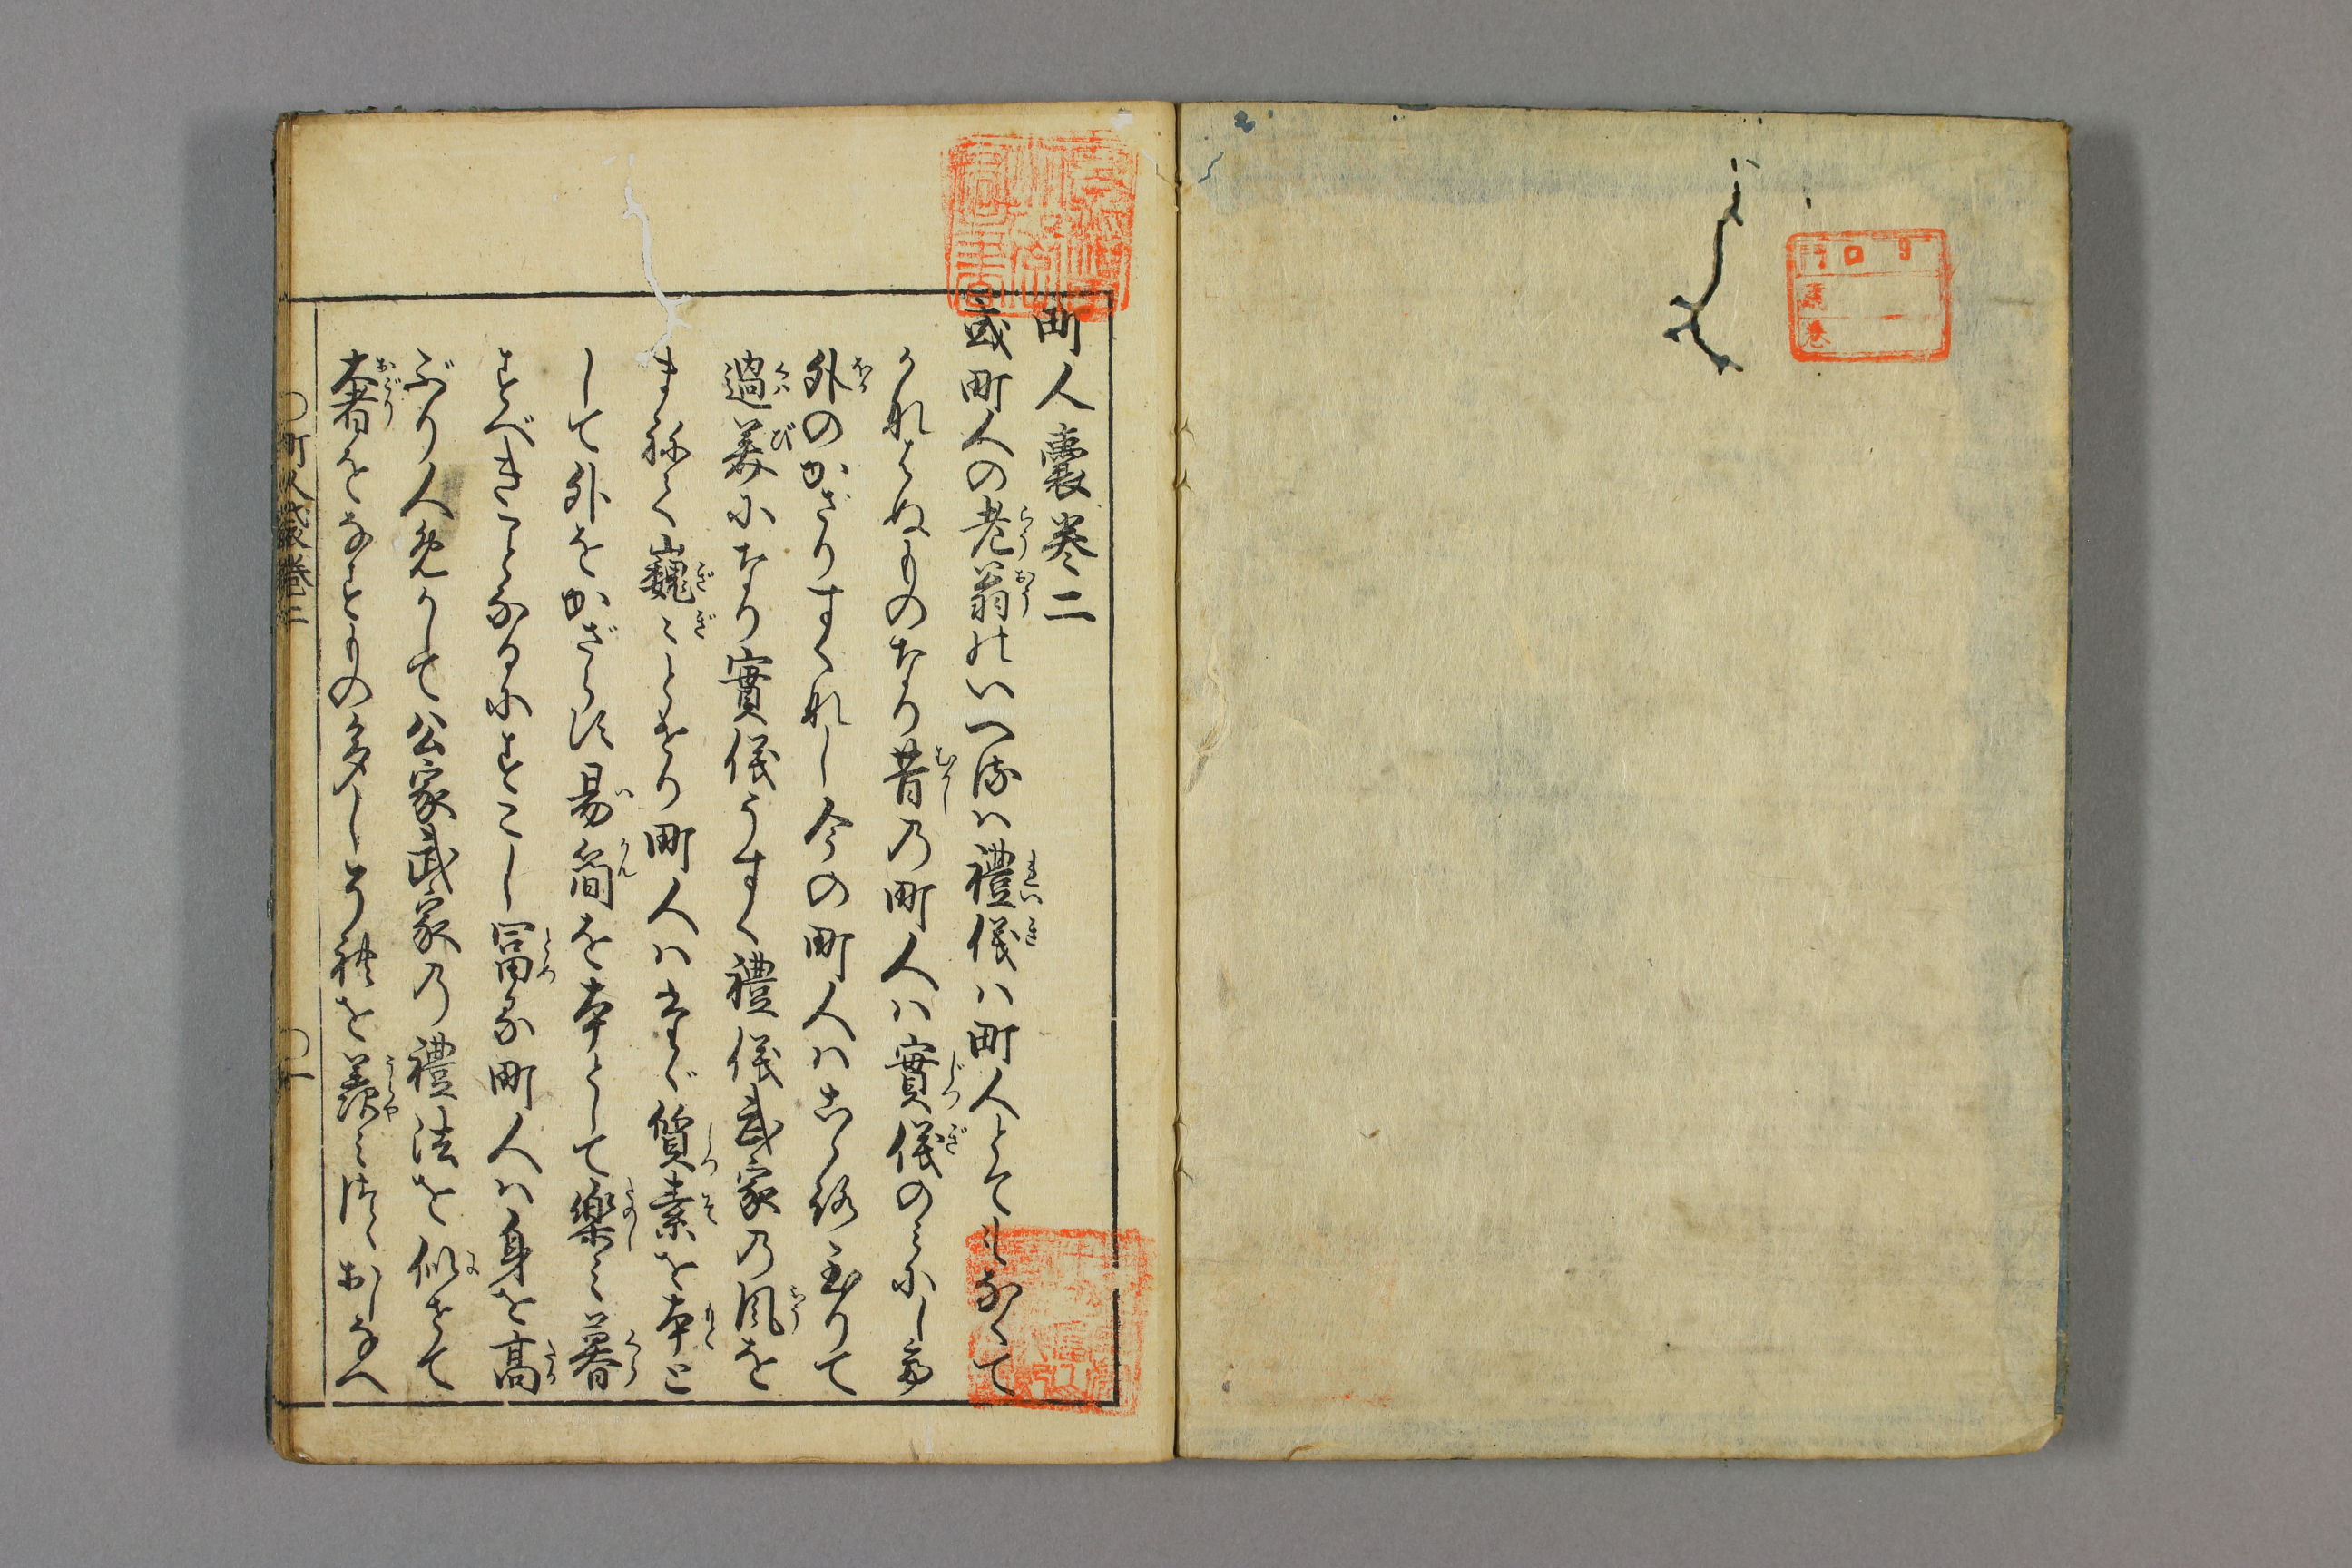 町人嚢巻二
或町人の老翁のいへるハ禮儀ハ町人とてもなくて
かなハぬものなり昔の町人ハ實儀のミにして
外のかざりすくなし今の町人ハこゝろ至りて
過美になり實儀うすく禮儀武家の風を
まねて巍〻しくなり町人ハたゞ質素を本と
して外をかざらず易簡を本として楽ミ暮
すべきことなるにすこし冨る町人ハ身を高
ぶり人めかして公家武家の禮法を似せて
奢をなすもの多しそれを羨ミてハおしなへ
町人嚢巻二
一